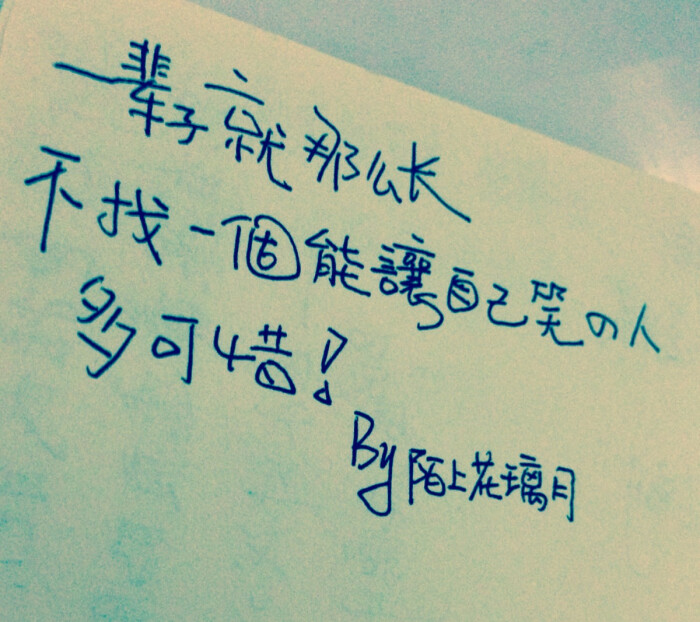 一辈子就那么长
不找一個能讓自己笑の人
多可惜!
By 陌上花璃月